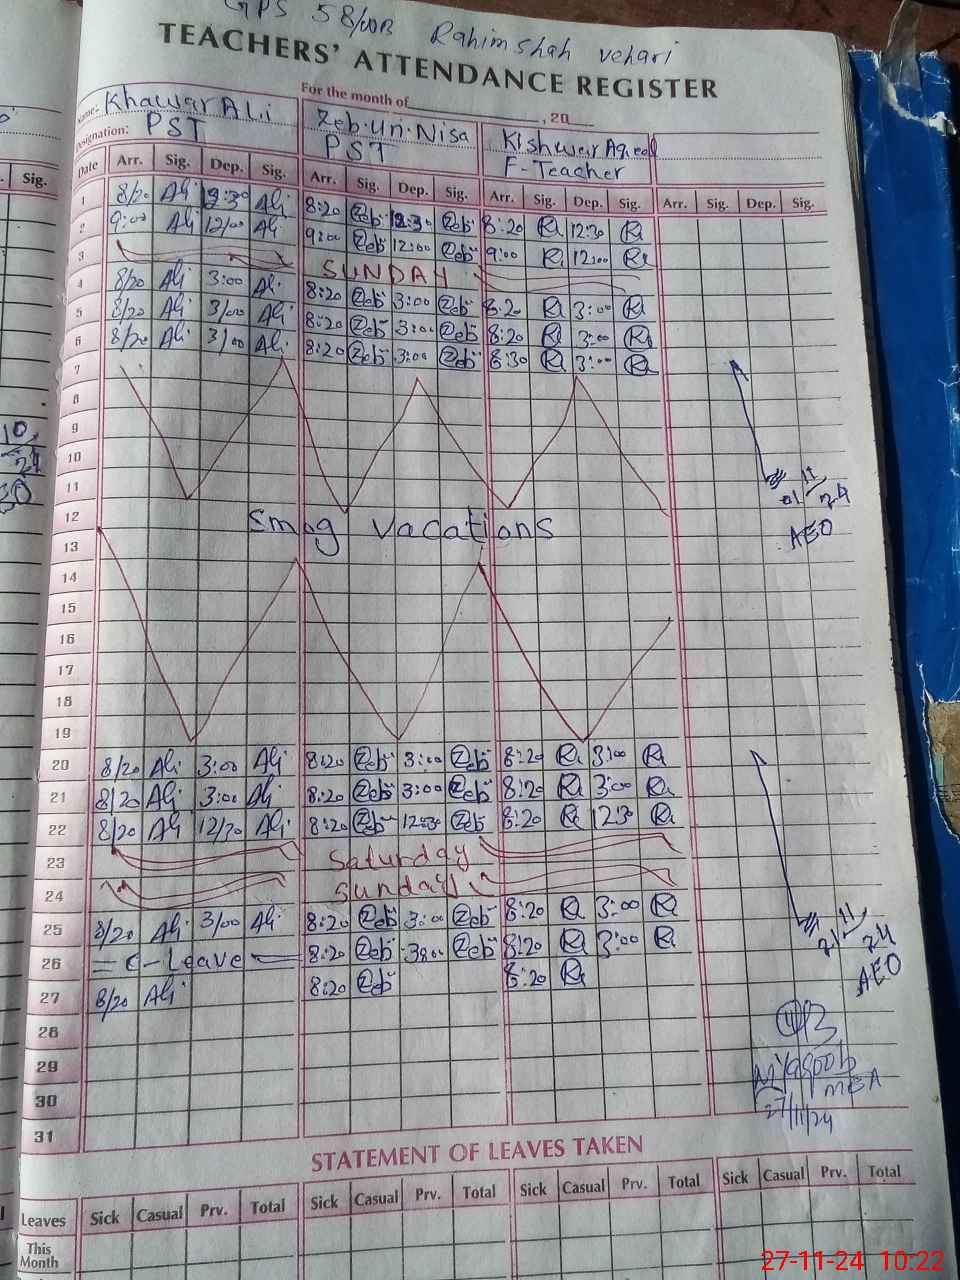 GPS 58/WB Rahim Shah Vehari
TEACHERS' ATTENDANCE REGISTER
For the month of , 20
Name: Khawar Ali Zeb-un-Nisa Kishwar
Designation: PST PST F-Teacher
Date Arr. Sig. Dep. Sig. Arr. Sig. Dep. Sig. Arr. Sig. Dep. Sig. Arr. Sig. Dep. Sig.
Sig.
1 8/20 Ali 12:30 Ali 8:20 Zeb 12:30 Zeb 8:20 12:30
2 9:00 Ali 12/00 Ali 9:00 Zeb 12:00 Zeb 9:00 12:00
3 SUNDAY
4 8/20 Ali 3:00 Ali 8:20 Zeb 3:00 Zeb 8:20 3:00
5 8/20 Ali 3/00 Ali 8:20 Zeb 3:00 Zeb 8:20 3:00
6 8/20 Ali 3/00 Ali 8:20 Zeb 3:00 Zeb 8:30 3:00
7
8
9
10
11
12 Smog Vacations
AEO
13
14
15
16
17
18
19
20 8/20 Ali 3:00 Ali 8:20 Zeb 3:00 Zeb 8:20 3:00
21 8/20 Ali 3:00 Ali 8:20 Zeb 3:00 Zeb 8:20 3:00
22 8/20 Ali 12/30 Ali 8:20 Zeb 12:30 Zeb 8:20 12:30
23 Saturday
24 Sunday
25 8/20 Ali 3/00 Ali 8:20 Zeb 3:00 Zeb 8:20 3:00
26 = C-Leave 8:20 Zeb 3:00 Zeb 8:20 3:00
27 8/20 Ali 8:20 Zeb 8:20
AEO
28
29
MEA
30
27/11/24
31
STATEMENT OF LEAVES TAKEN
Leaves Sick Casual Prv. Total Sick Casual Prv. Total Sick Casual Prv. Total Sick Casual Prv. Total
This Month
27-11-24 10:22